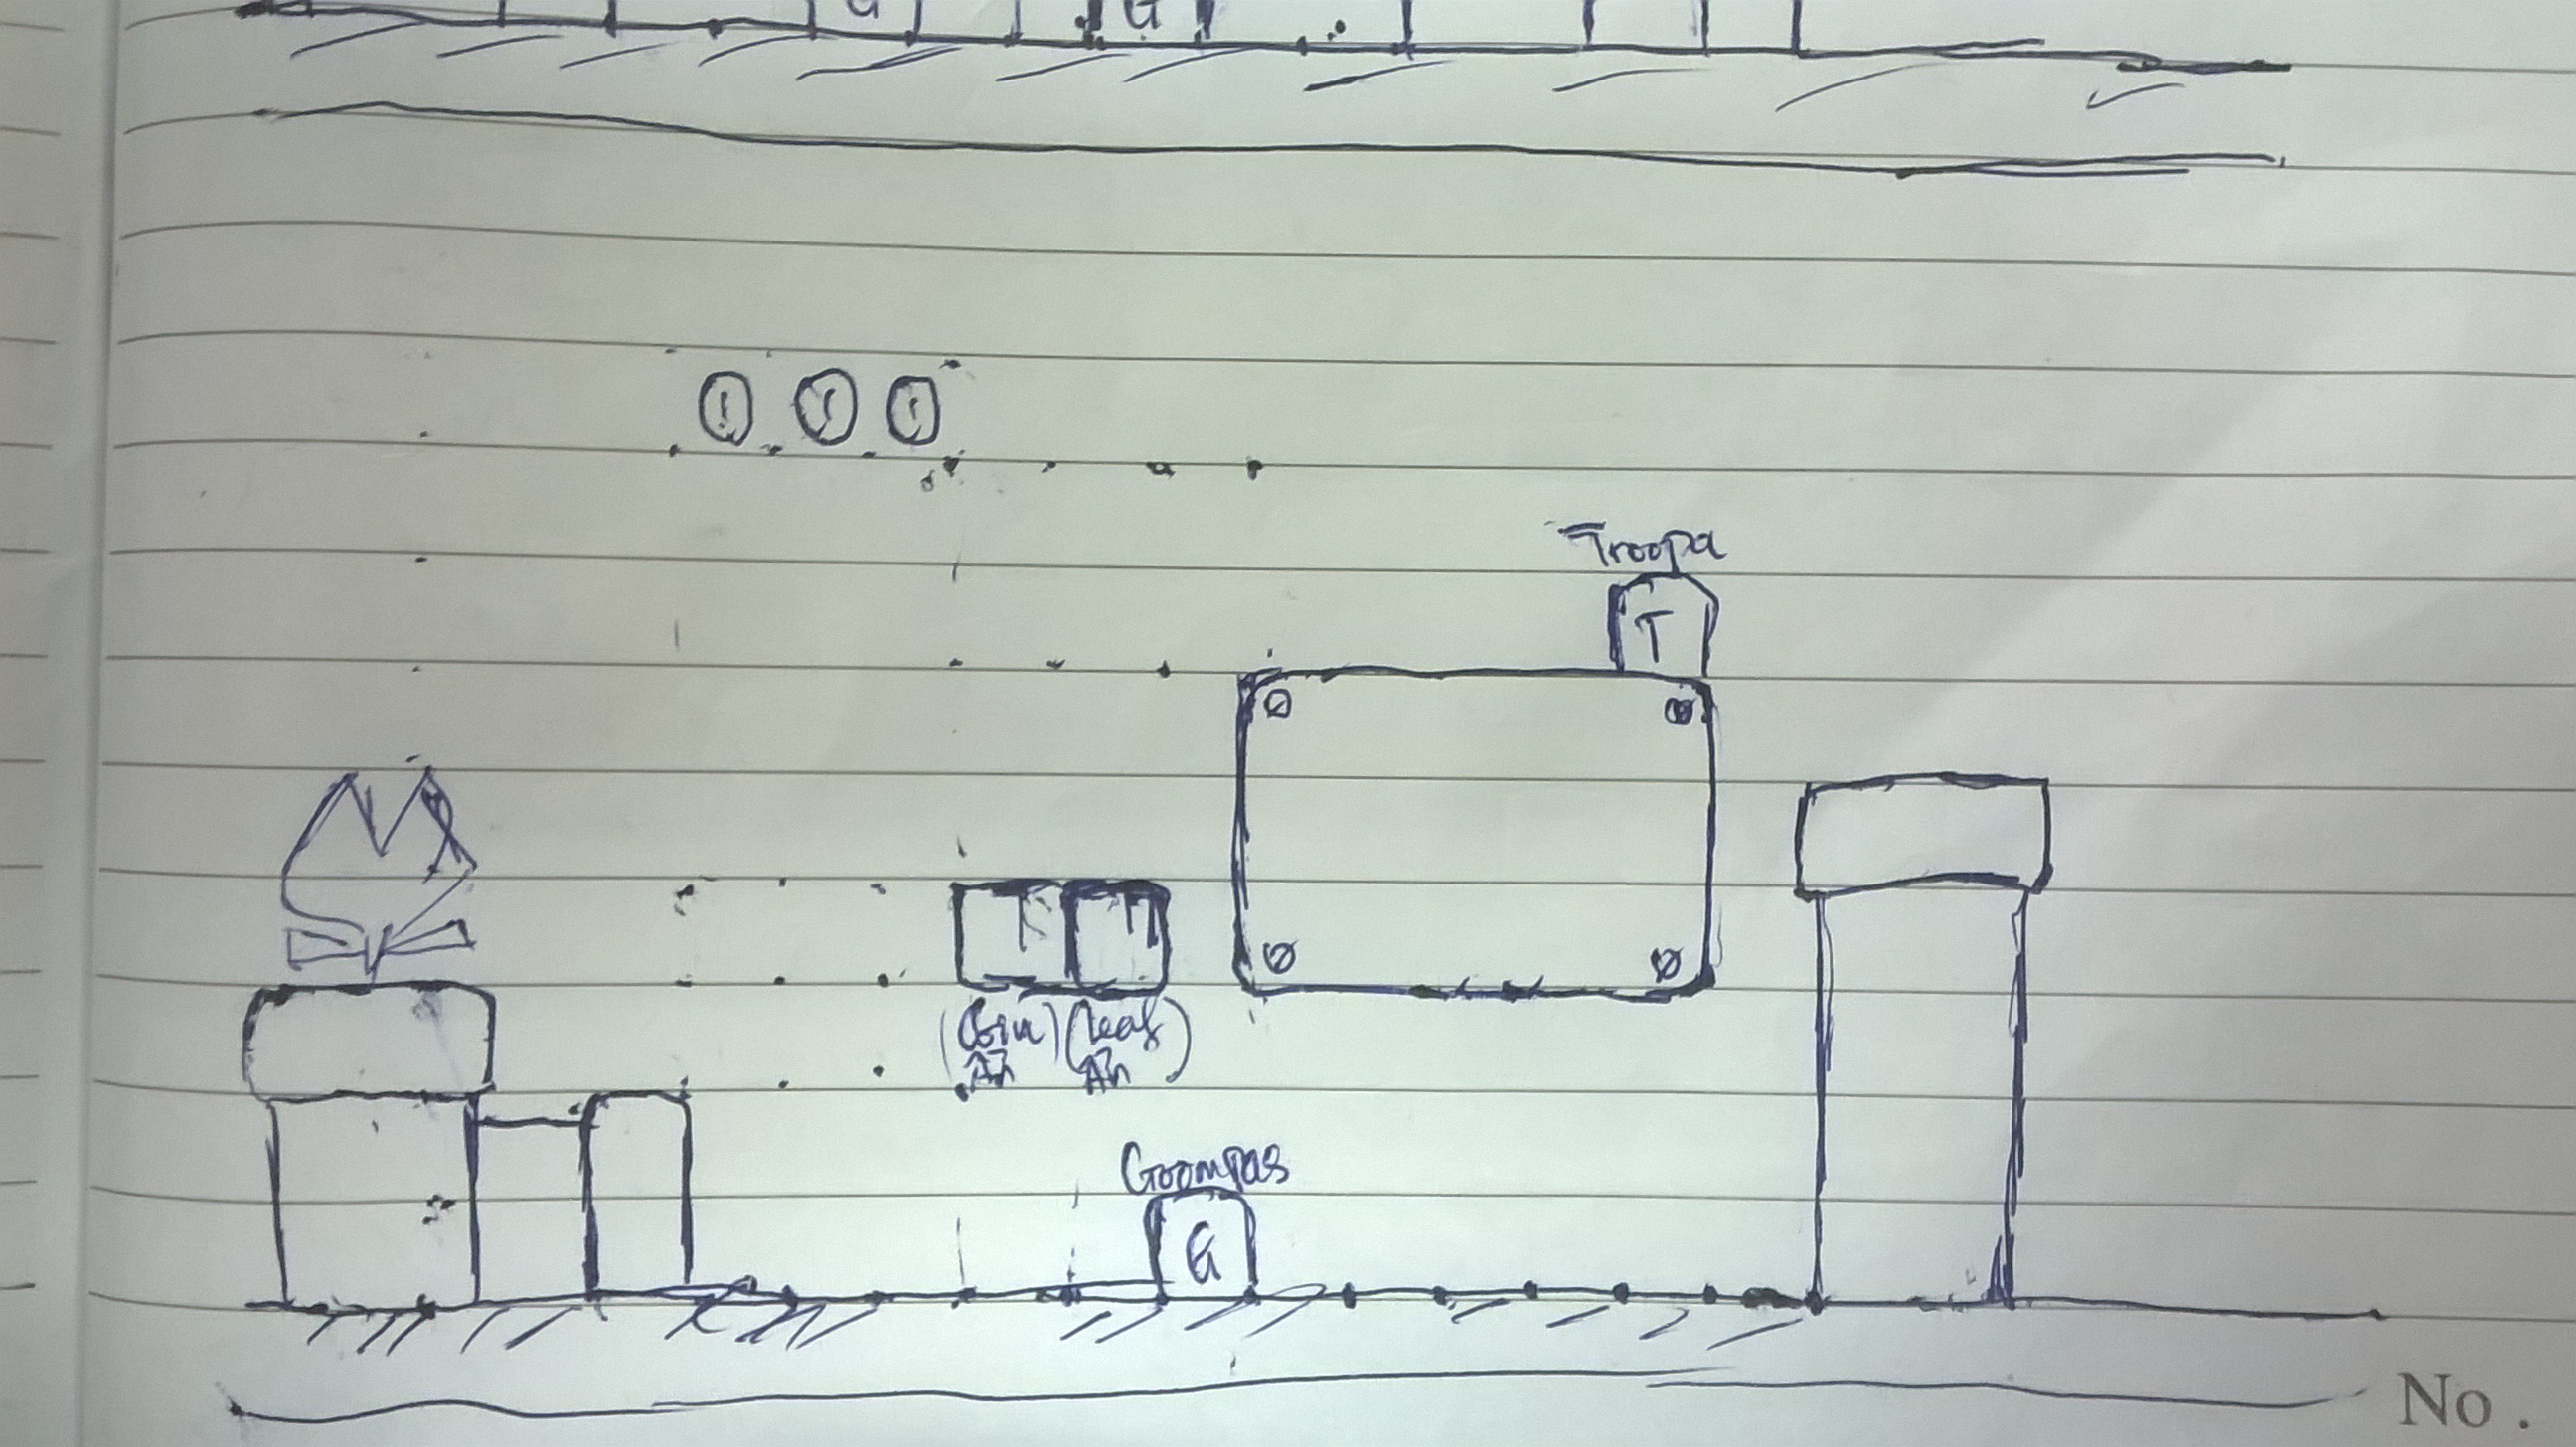 G G
Troopa
T
(Coin) (Leaf)
Goompas
G
No.